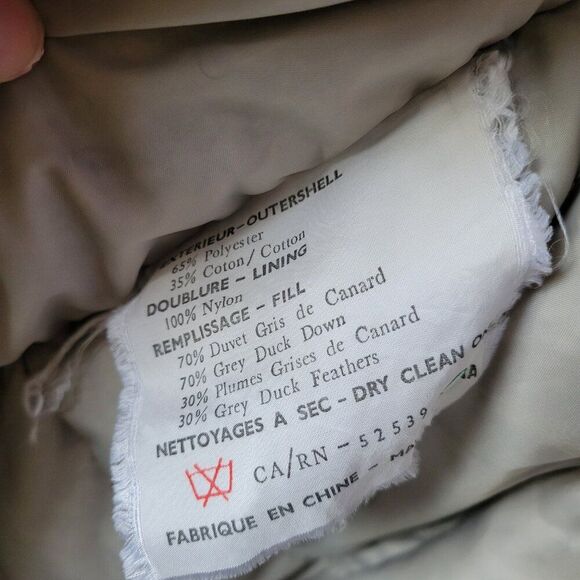 EXTERIEUR-OUTERSHELL
65% Polyester
35% Coton/Cotton
DOUBLURE - LINING
100% Nylon
REMPLISSAGE - FILL
70% Duvet Gris de Canard
70% Grey Duck Down
30% Plumes Grises de Canard
30% Grey Duck Feathers
NETTOYAGES A SEC - DRY CLEAN
CA/RN - 52539
FABRIQUE EN CHINE -